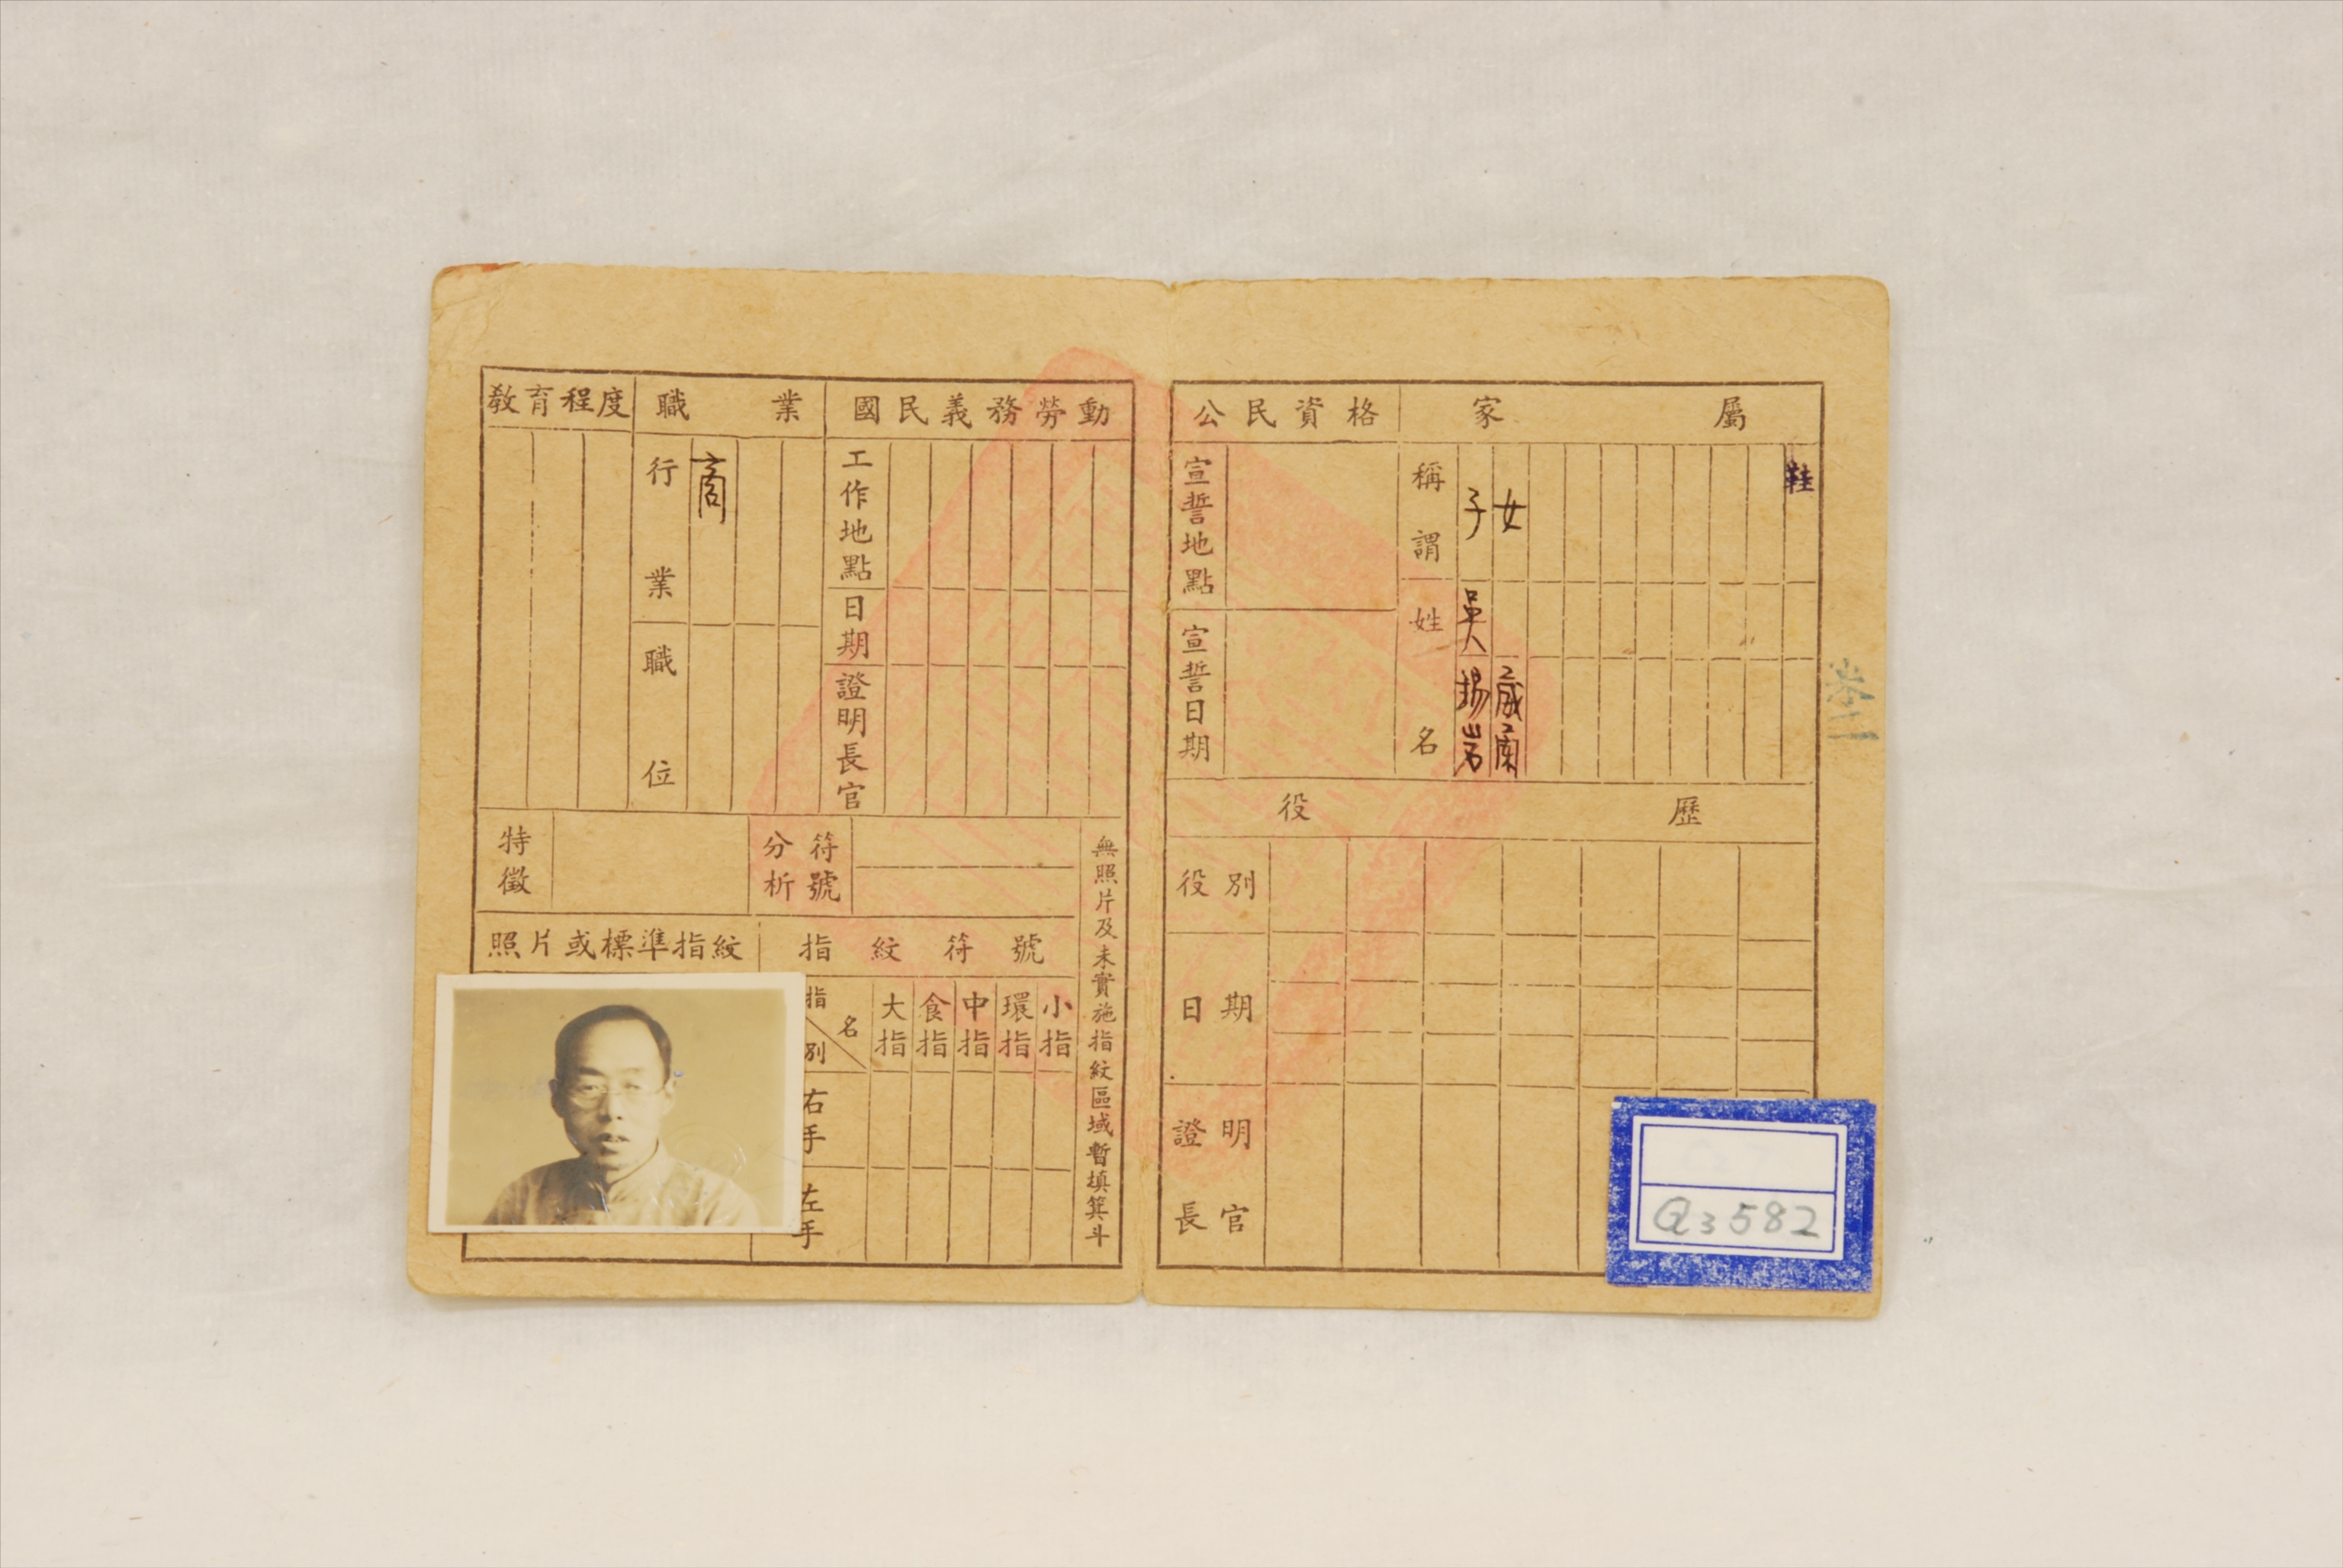 教育程度
職業
國民義務勞動
行業
商
職位
工作地點
日期
證明長官
特徵
分析符號
無照片及未實施指紋區域暫填箕斗
照片或標準指紋
指紋符號
指名別
大指
食指
中指
環指
小指
右手
左手
公民資格
家屬
宣誓地點
宣誓日期
稱謂
子
女
鞋
姓名
吳
岩
役歷
役別
日期
證明長官
Q3582